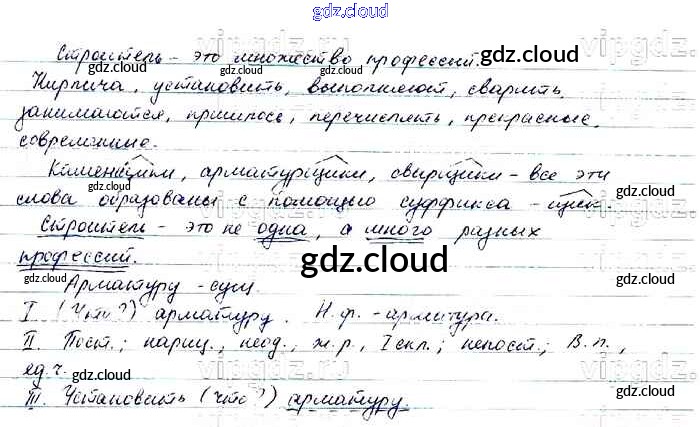 gdz.cloud
gdz.cloud
Строитель - это множество профессий.
gdz.cloud
Кирпича, установить, выполняют, сварить,
gdz.cloud
занимаются, пришлось, перечислять, прекрасные,
gdz.cloud
современные.
Каменщики, арматурщики, сварщики - все эти
gdz.cloud
слова образованы с помощью суффикса -щик-.
gdz.cloud
Строитель - это не одна, а много разных
gdz.cloud
профессий.
gdz.cloud
Арматуру - сущ.
I (Что?) арматуру. Н.ф. - арматура.
gdz.cloud
II. Пост.; нариц., неод., ж.р., I скл.; непост.; В.п.,
gdz.cloud
ед.ч.
gdz.cloud
III. Установить (что?) арматуру.
gdz.cloud
vipgdz.ru